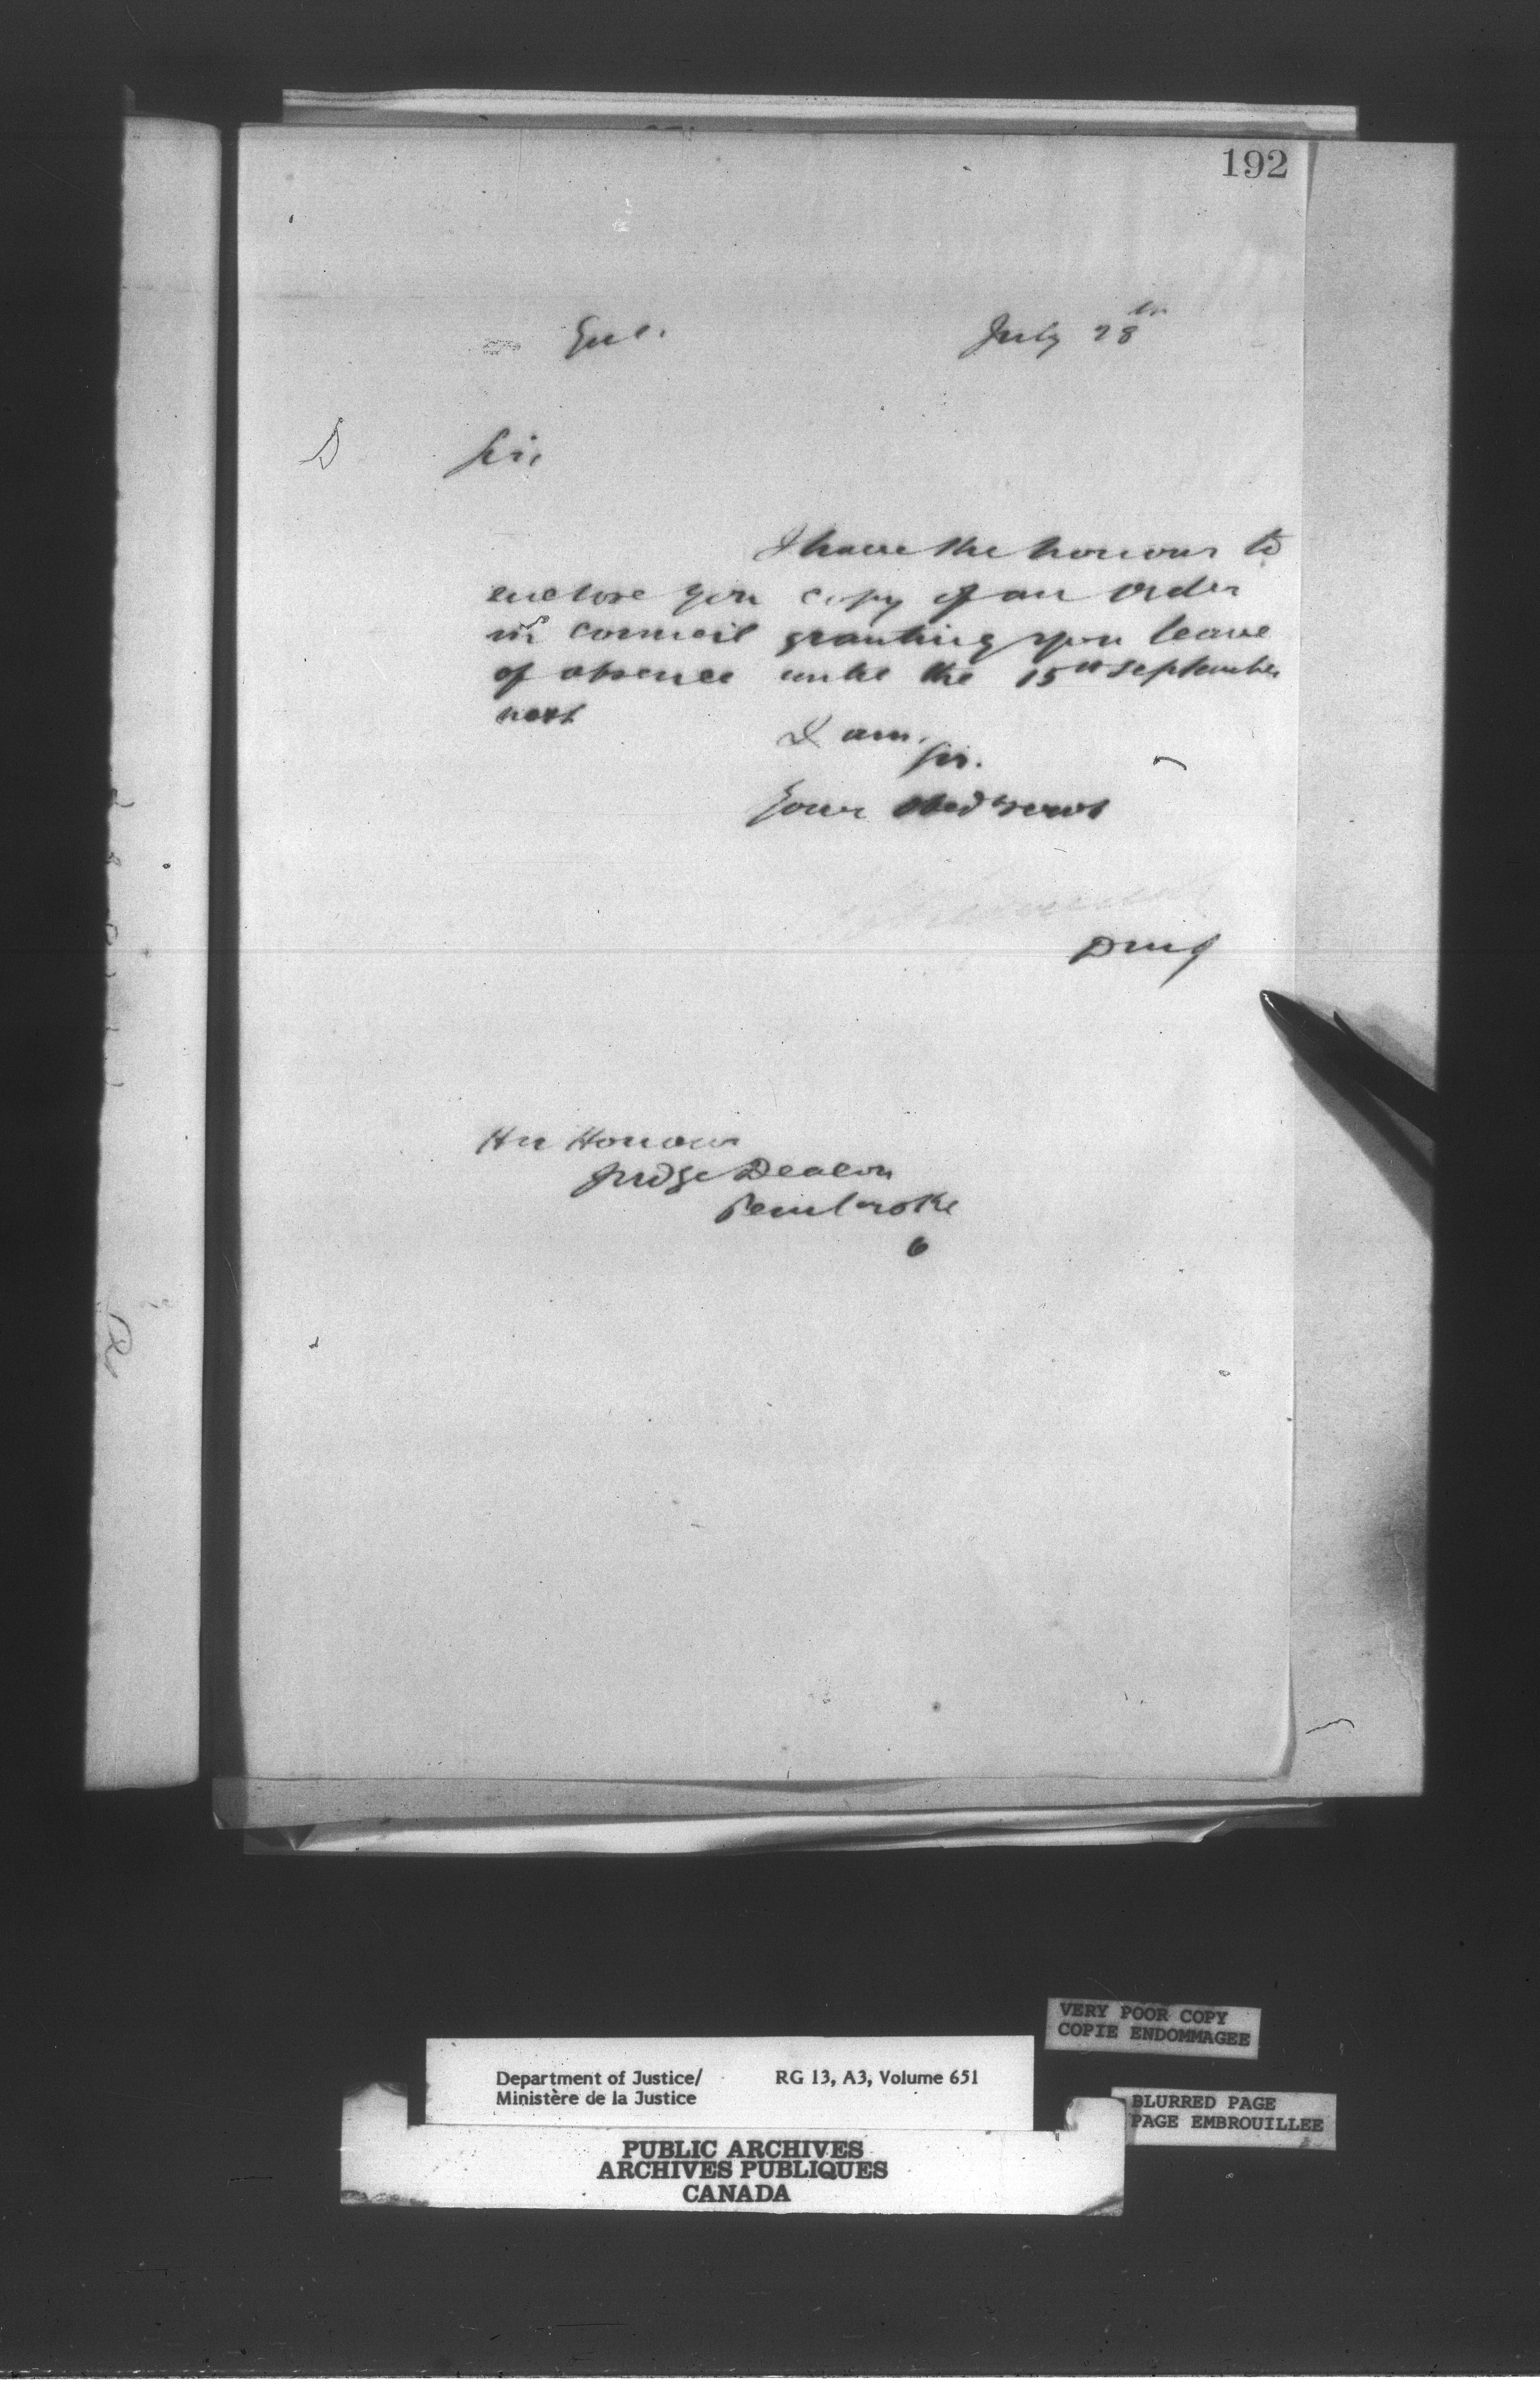 192
Encl. July 28th
D Sir,
I have the honour to
enclose you copy of an Order
in Council granting you leave
of absence until the 15th September
next
I am,
Sir.
Your Obed Servt
DMJ
His Honour
Judge Deacon
Pembroke
O
VERY POOR COPY
COPIE ENDOMMAGEE
Department of Justice/ RG 13, A3, Volume 651
Ministère de la Justice
BLURRED PAGE
PAGE EMBROUILLEE
PUBLIC ARCHIVES
ARCHIVES PUBLIQUES
CANADA